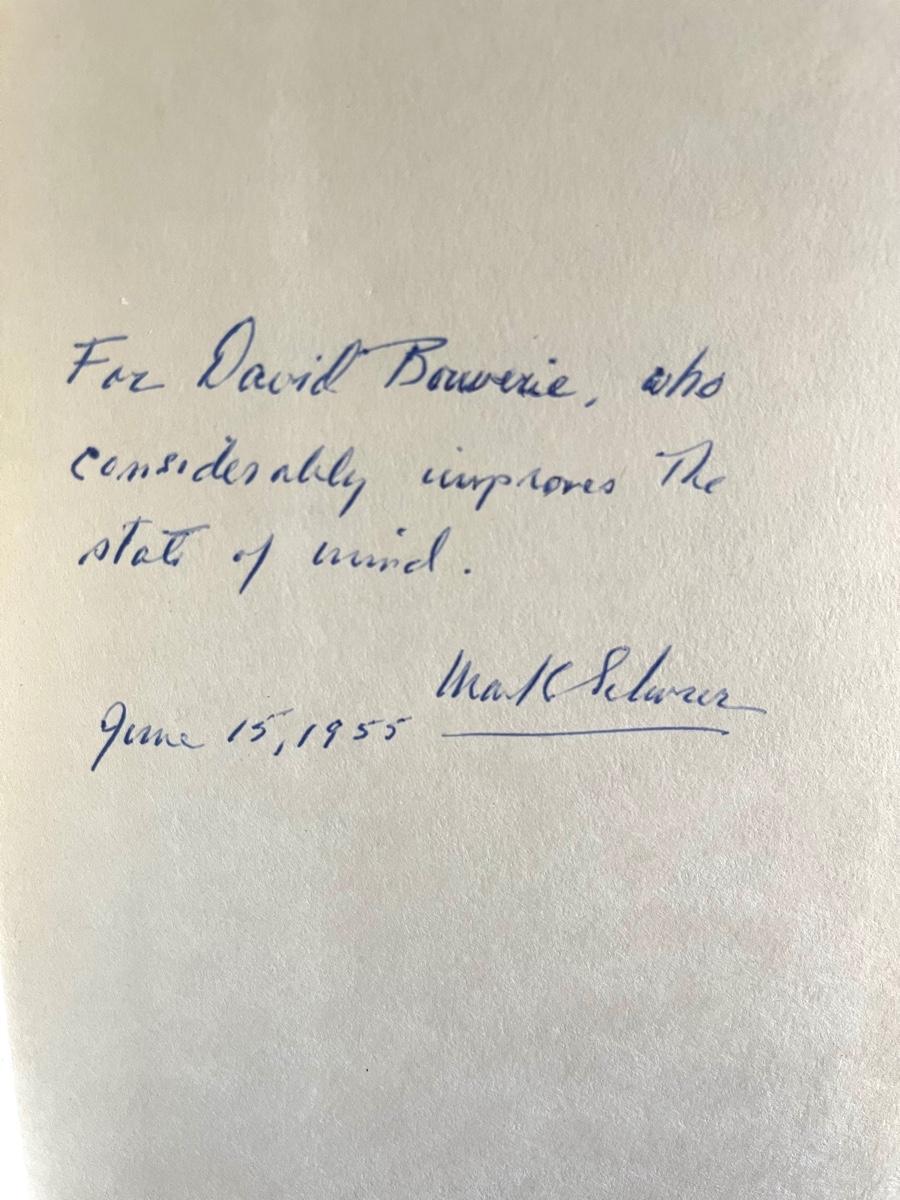 For David Bouverie, who
considerably improves the
state of mind.
Mark Schorer
June 15, 1955